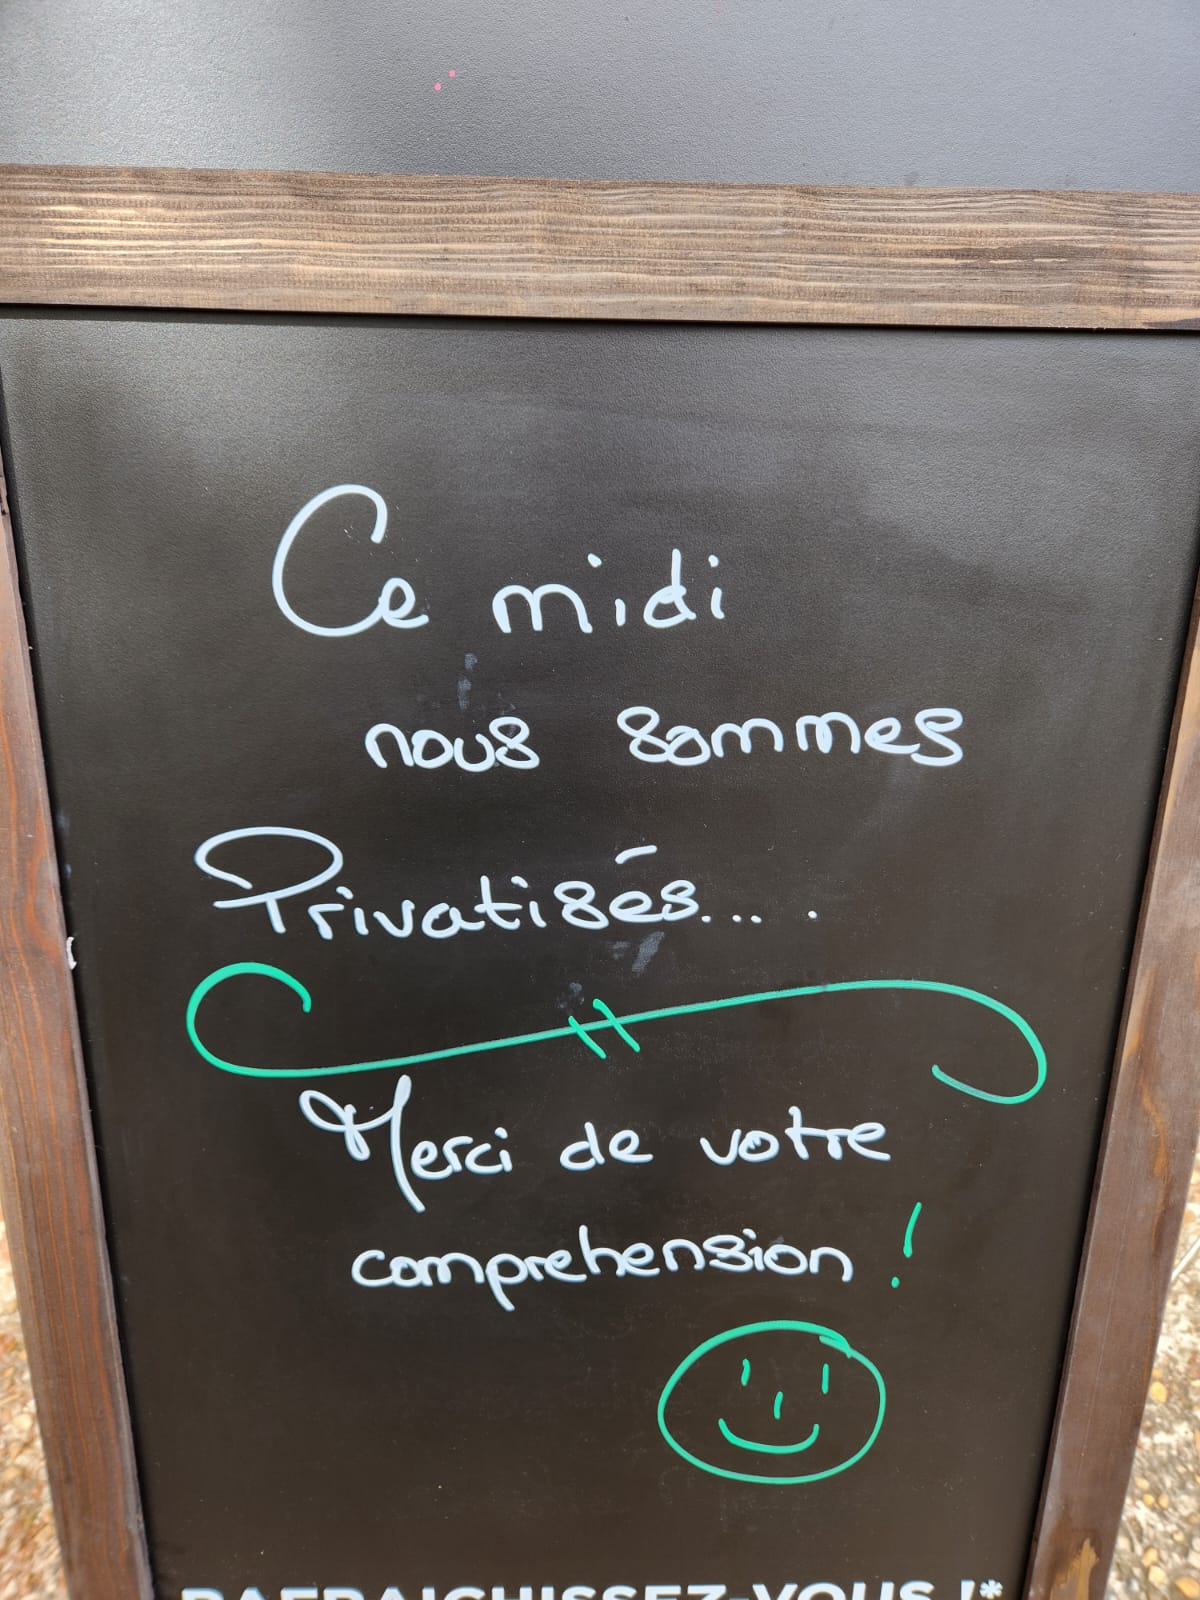 Ce midi
nous sommes
Privatisés....
Merci de votre
comprehension !
RAFRAICHISSEZ-VOUS !*